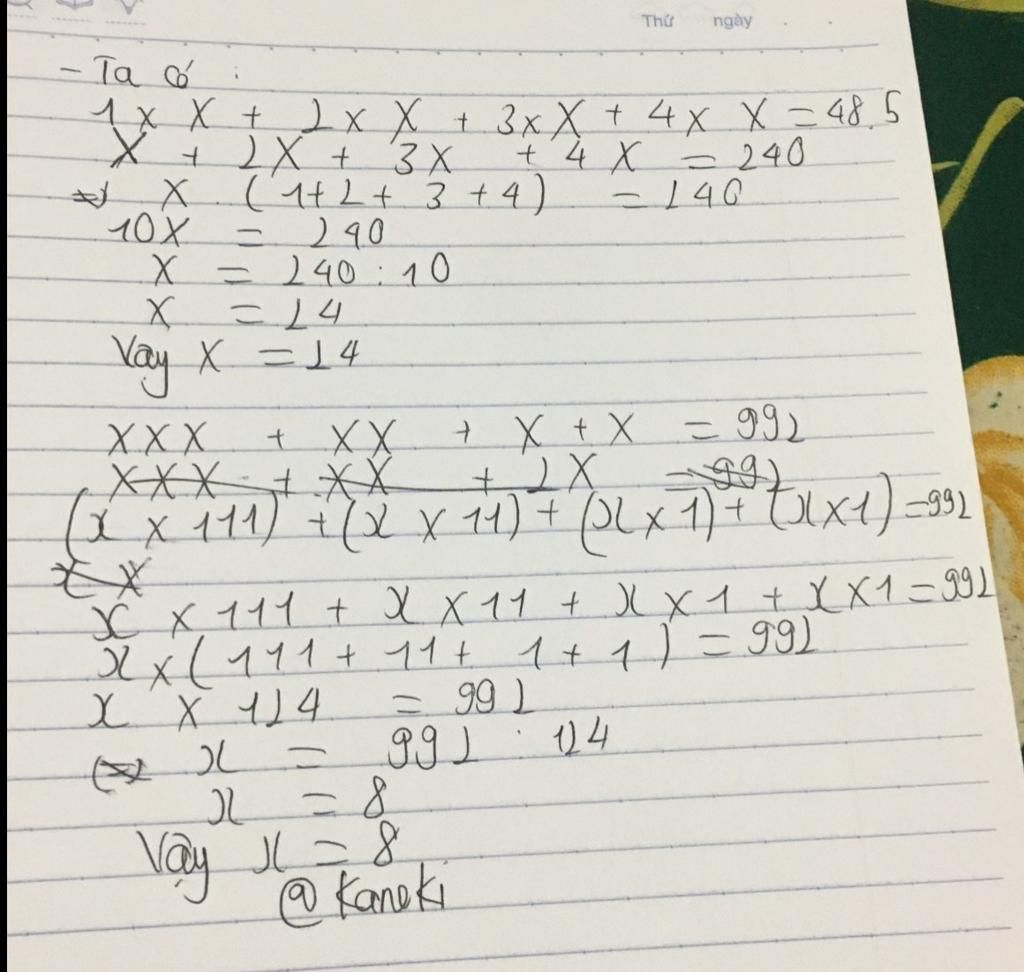 Thứ ngày
- Ta có :
1 x X + 2 x X + 3 x X + 4 x X = 48.5
X + 2X + 3X + 4X = 240
=> X . (1 + 2 + 3 + 4) = 240
10X = 240
X = 240 : 10
X = 24
Vậy X = 24
XXX + XX + X + X = 992
XXX + XX + 2X = 992
(x x 111) + (x x 11) + (x x 1) + (x x 1) = 992
x x 111 + x x 11 + x x 1 + x x 1 = 992
x x (111 + 11 + 1 + 1) = 992
x x 124 = 992
x = 992 : 124
x = 8
Vậy x = 8
@ Kaneki